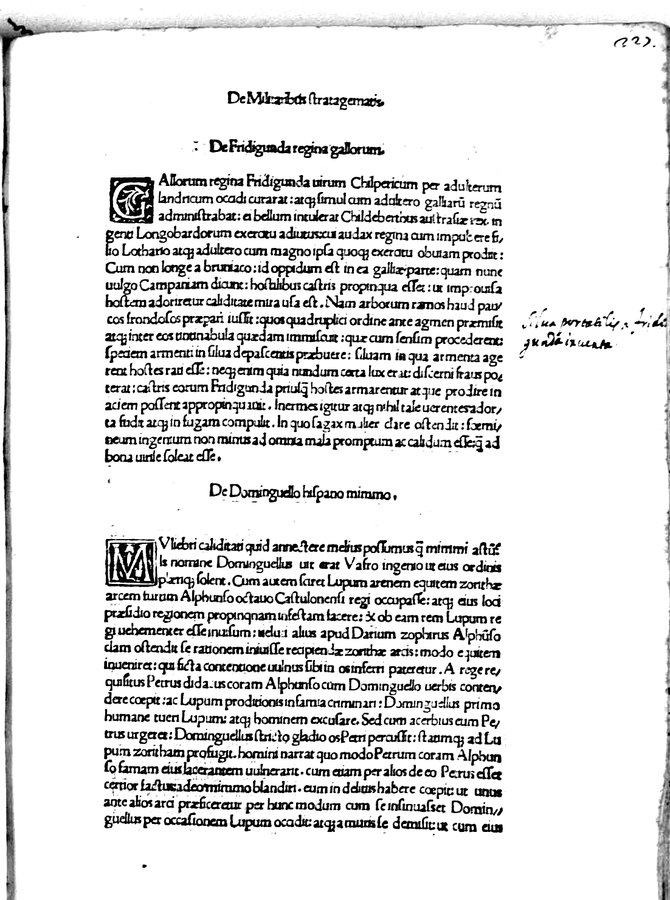 227.
De Militaribus stratagematis,
De Fridigunda regina gallorum,
GAllorum regina Fridigunda uirum Chilpericum per adulterum
landricum occidi curarat: atq; simul cum adultero galliarū regnū
administrabat: ei bellum intulerat Childebertus austrasiæ rex. in
genti Longobardorum exercitu adiutus: cui audax regina cum impubere fi,
lio Lothario atq; adultero cum magno ipsa quoq; exercitu obuiam prodiit:
Cum non longe a bruniaco: id oppidum est in ea galliæ parte: quam nunc
uulgo Campaniam dicunt: hostilibus castris propinqua esset: ut improuisa
hostem adoriretur caliditate mira usa est. Nam arborum ramos haud pau/
cos frondosos præpari iussit: quos quadruplici ordine ante agmen præmisit
atq; inter eos tintinabula quædam immiscuit: quæ cum sensim procederent:
speciem armenti in silua depascentis præbuere: siluam in qua armenta age
rent hostes rati esse: neq; enim quia nundum certa lux erat: discerni fraus po,
terat: castris eorum Fridigunda priusq̄ hostes armarentur atque prodire in
aciem possent appropinquauit. Inermes igitur atq; nihil tale uerentes ador,
ta fudit atq; in fugam compulit. In quo sagax mulier clare ostendit: fœmi,
neum ingenium non minus ad omnia mala promptum ac calidum esse: q̄ ad
bona uirile soleat esse.
Silua portatilis a fridi
gunda inuenta
De Dominguello hispano mimmo,
MVliebri caliditati quid annectere melius possumus q̄ mimmi astū?
Is nomine Dominguellus ut erat Vafro ingenio ut eius ordinis
pleriq; solent. Cum autem sciret Lupum arenem equitem zorithæ
arcem turrim Alphunso octauo Castulonensi regi occupasse: atq; eius loci
præsidio regionem propinquam infestam facere: & ob eam rem Lupum re
gi uehementer esse inuisum: uelut alius apud Darium zophirus Alphūso
clam ostendit se rationem iniuisse recipiendæ zorithæ arcis: modo equitem
inueniret: qui ficta contentione uulnus sibi in os inferri pateretur. A rege re/
quisitus Petrus didacus coram Alphunso cum Dominguello uerbis conten/
dere cœpit: ac Lupum proditionis infamia criminari: Dominguellus primo
humane tueri Lupum: atq; hominem excusare. Sed cum acerbius eum Pe/
trus urgeret: Dominguellus stricto gladio os Petri percussit: statimq; ad Lu
pum zoritham profugit. homini narrat quo modo Petrum coram Alphun
so famam eius lacerantem uulnerarit. cum etiam per alios de eo Petrus esset
certior factus adeo mimmo blandiri. eum in delitiis habere cœpit: ut unus
ante alios arci præficeretur per hunc modum cum se insinuasset Domin//
guellus per occasionem Lupum occidit: atq; a muris se demisit: ut cum eius